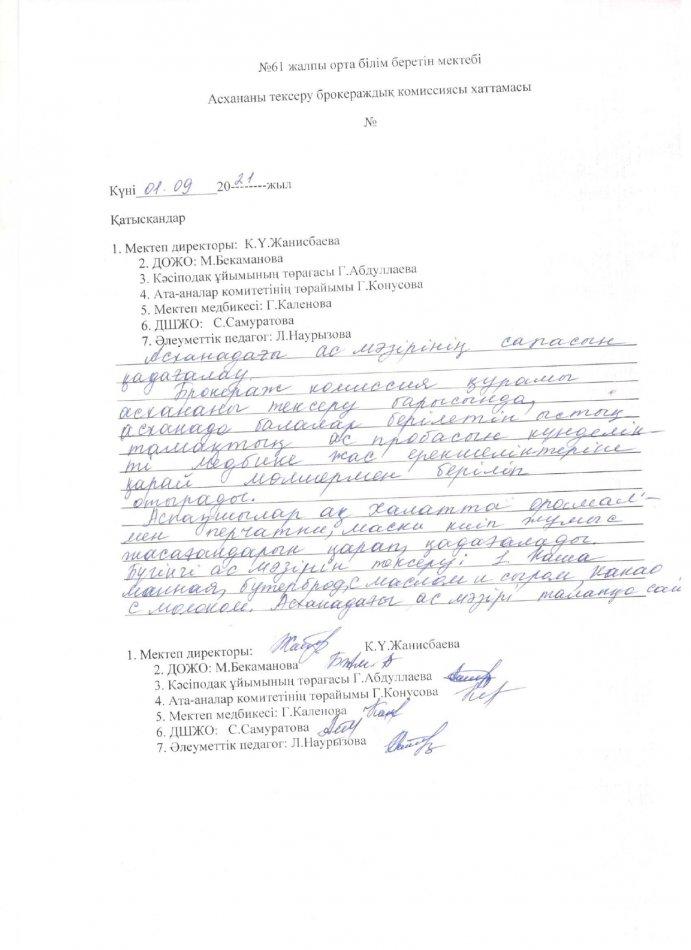 №61 жалпы орта білім беретін мектебі
Асхананы тексеру брокераждық комиссиясы хаттамасы
№
Күні 01.09 20-21-жыл
Қатысқандар
1. Мектеп директоры: К.Ү.Жанисбаева
2. ДОЖО: М.Бекаманова
3. Кәсіподақ ұйымының төрағасы Г.Абдуллаева
4. Ата-аналар комитетінің төрайымы Г.Конусова
5. Мектеп медбикесі: Г.Каленова
6. ДШЖО: С.Самуратова
7. Әлеуметтік педагог: Л.Наурызова
Асханадағы ас мәзірінің сапасын
қадағалау.
Брокераж комиссия құрамы
асхананы тексеру барысында,
асханада балалар берілетін ыстық
тамақтың ас пробасын күнделік-
ті медбике жас ерекшеліктеріне
қарай мөлшермен беріліп
отырады.
Аспазшылар ақ халатта орамал-
мен перчатки, маски киіп жұмыс
жасағандарын қарап, қадағалады.
Бүгінгі ас мәзірін тексеруі: 1. Каша
манная, бутерброд с маслом и сыром, какао
с молоком. Асханадағы ас мәзірі талапқа сай
1. Мектеп директоры: К.Ү.Жанисбаева
2. ДОЖО: М.Бекаманова
3. Кәсіподақ ұйымының төрағасы Г.Абдуллаева
4. Ата-аналар комитетінің төрайымы Г.Конусова
5. Мектеп медбикесі: Г.Каленова
6. ДШЖО: С.Самуратова
7. Әлеуметтік педагог: Л.Наурызова